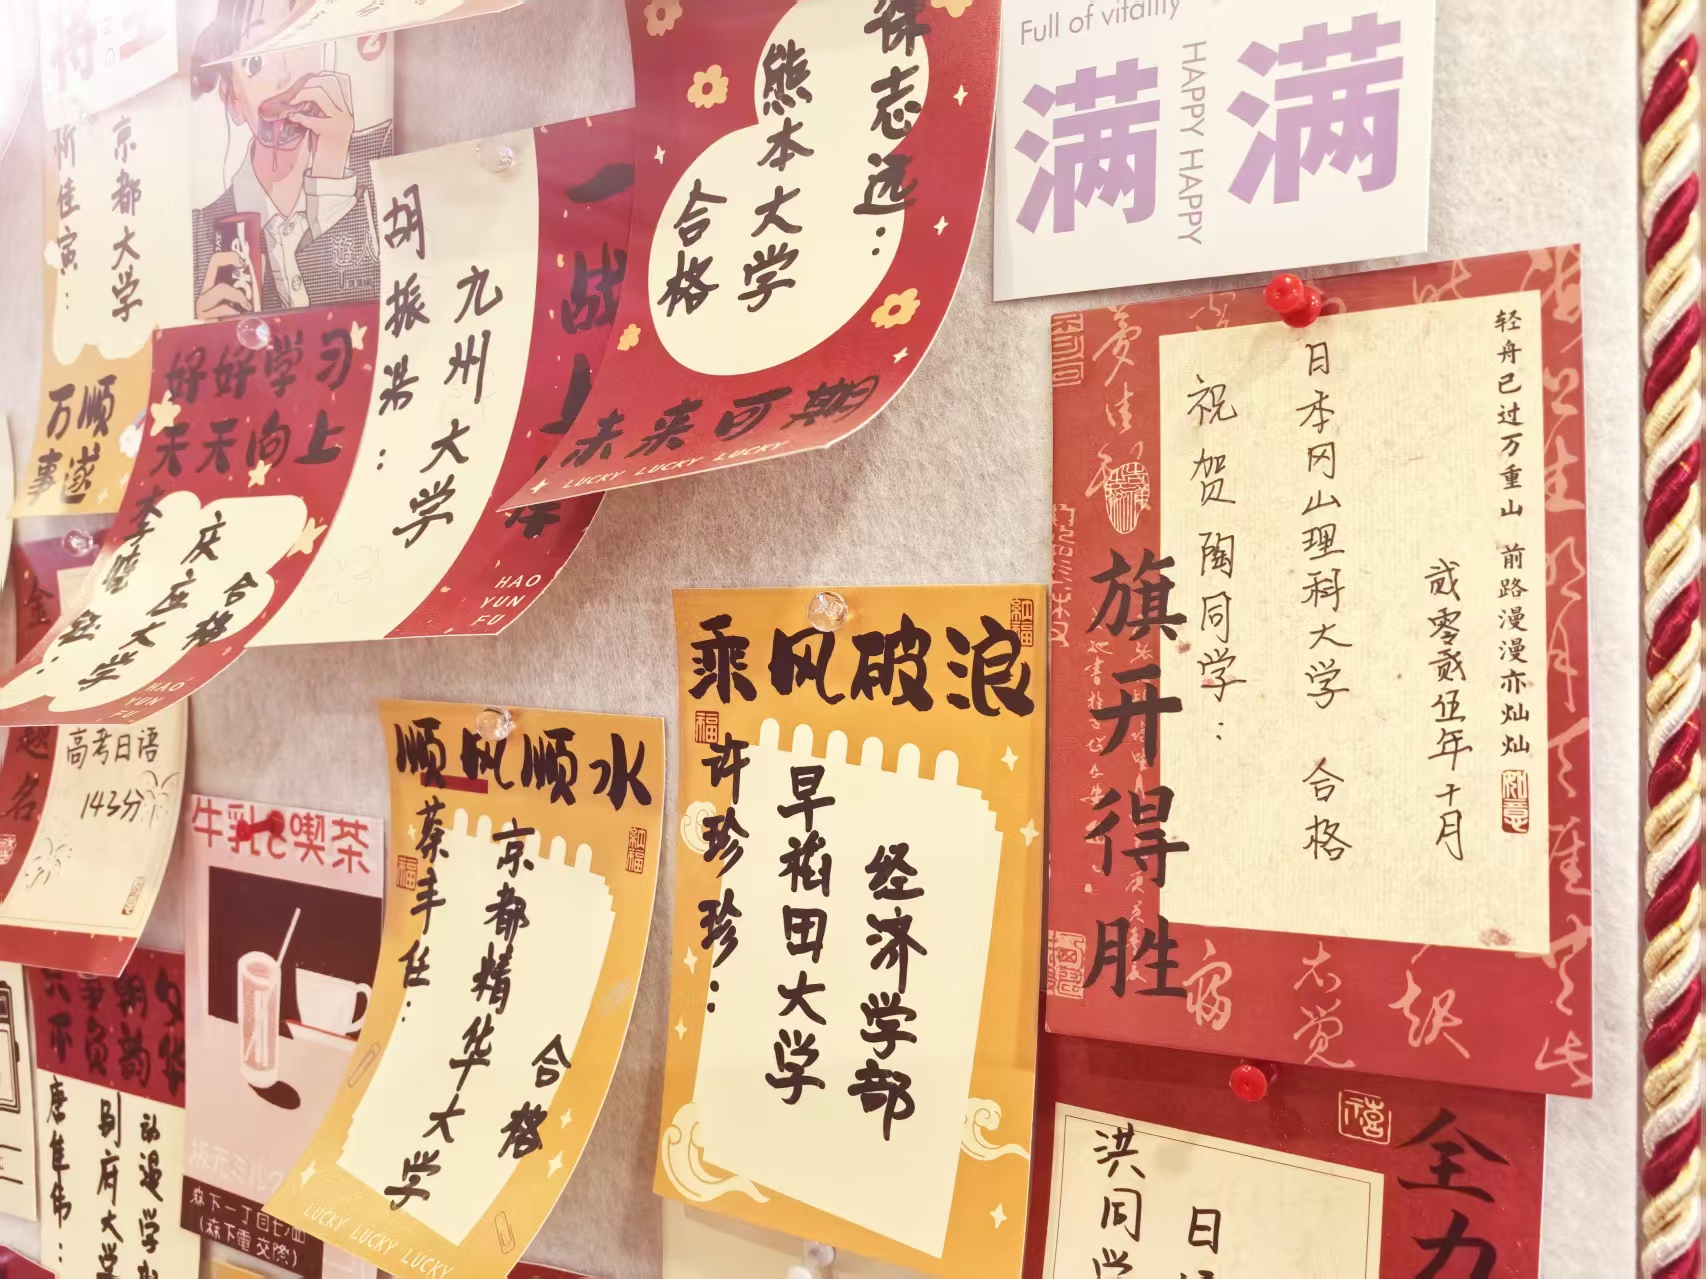 京都大学
佳寅：
万顺
事遂
好好学习
天天向上
庆应大学
合格
HAO
YUN
FU
胡振浩：
九州大学
HAO
YUN
FU
一战
徐志远：
熊本大学
合格
未来可期
LUCKY LUCKY LUCKY
Full of vitality
满满
HAPPY HAPPY
轻舟已过万重山 前路漫漫亦灿灿
贰零贰伍年十月
日本冈山理科大学 合格
祝贺陶同学：
旗开得胜
乘风破浪
许珍珍：
早稲田大学
经济学部
顺风顺水
蔡丰任：
京都精华大学
合格
LUCKY LUCKY LUCKY
高考日语
143分
名
牛乳と喫茶
森下一丁目七
(森下電交際)
唐隼伟：
别府大学
全力
洪同学
日